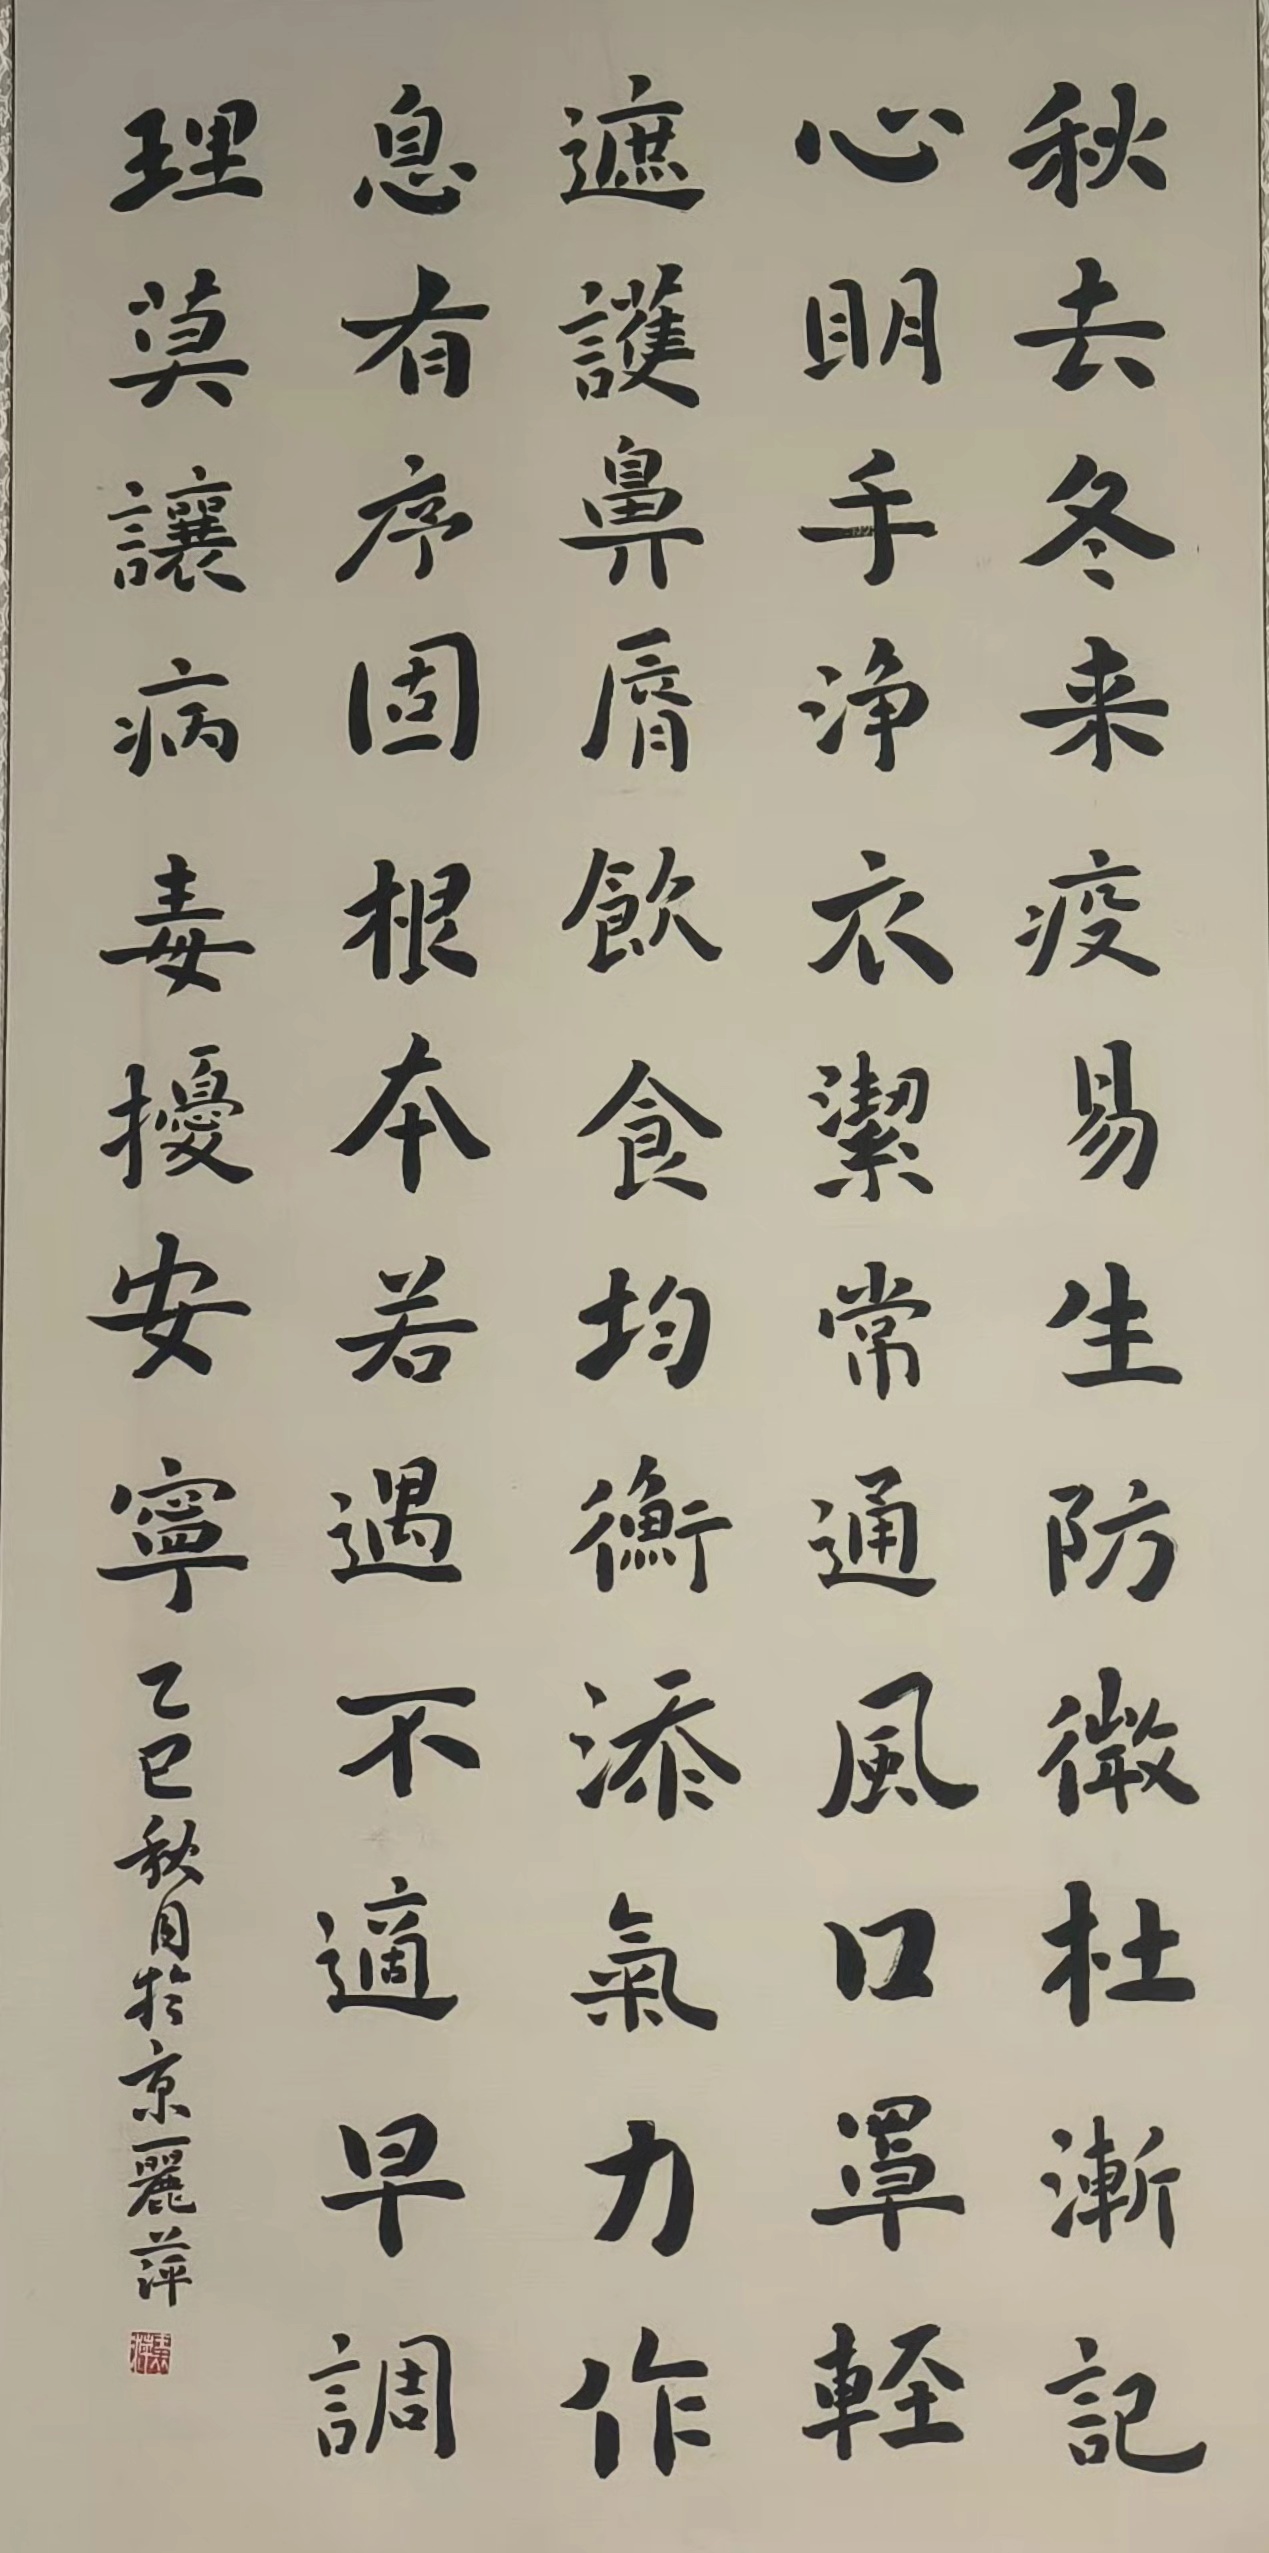 秋去冬来疫易生防微杜漸記
心明手浄衣潔常通風口罩輕
遮護鼻脣飲食均衡添氣力作
息有序固根本若遇不適早調
理莫讓病毒擾安寧
乙巳秋月於京麗萍